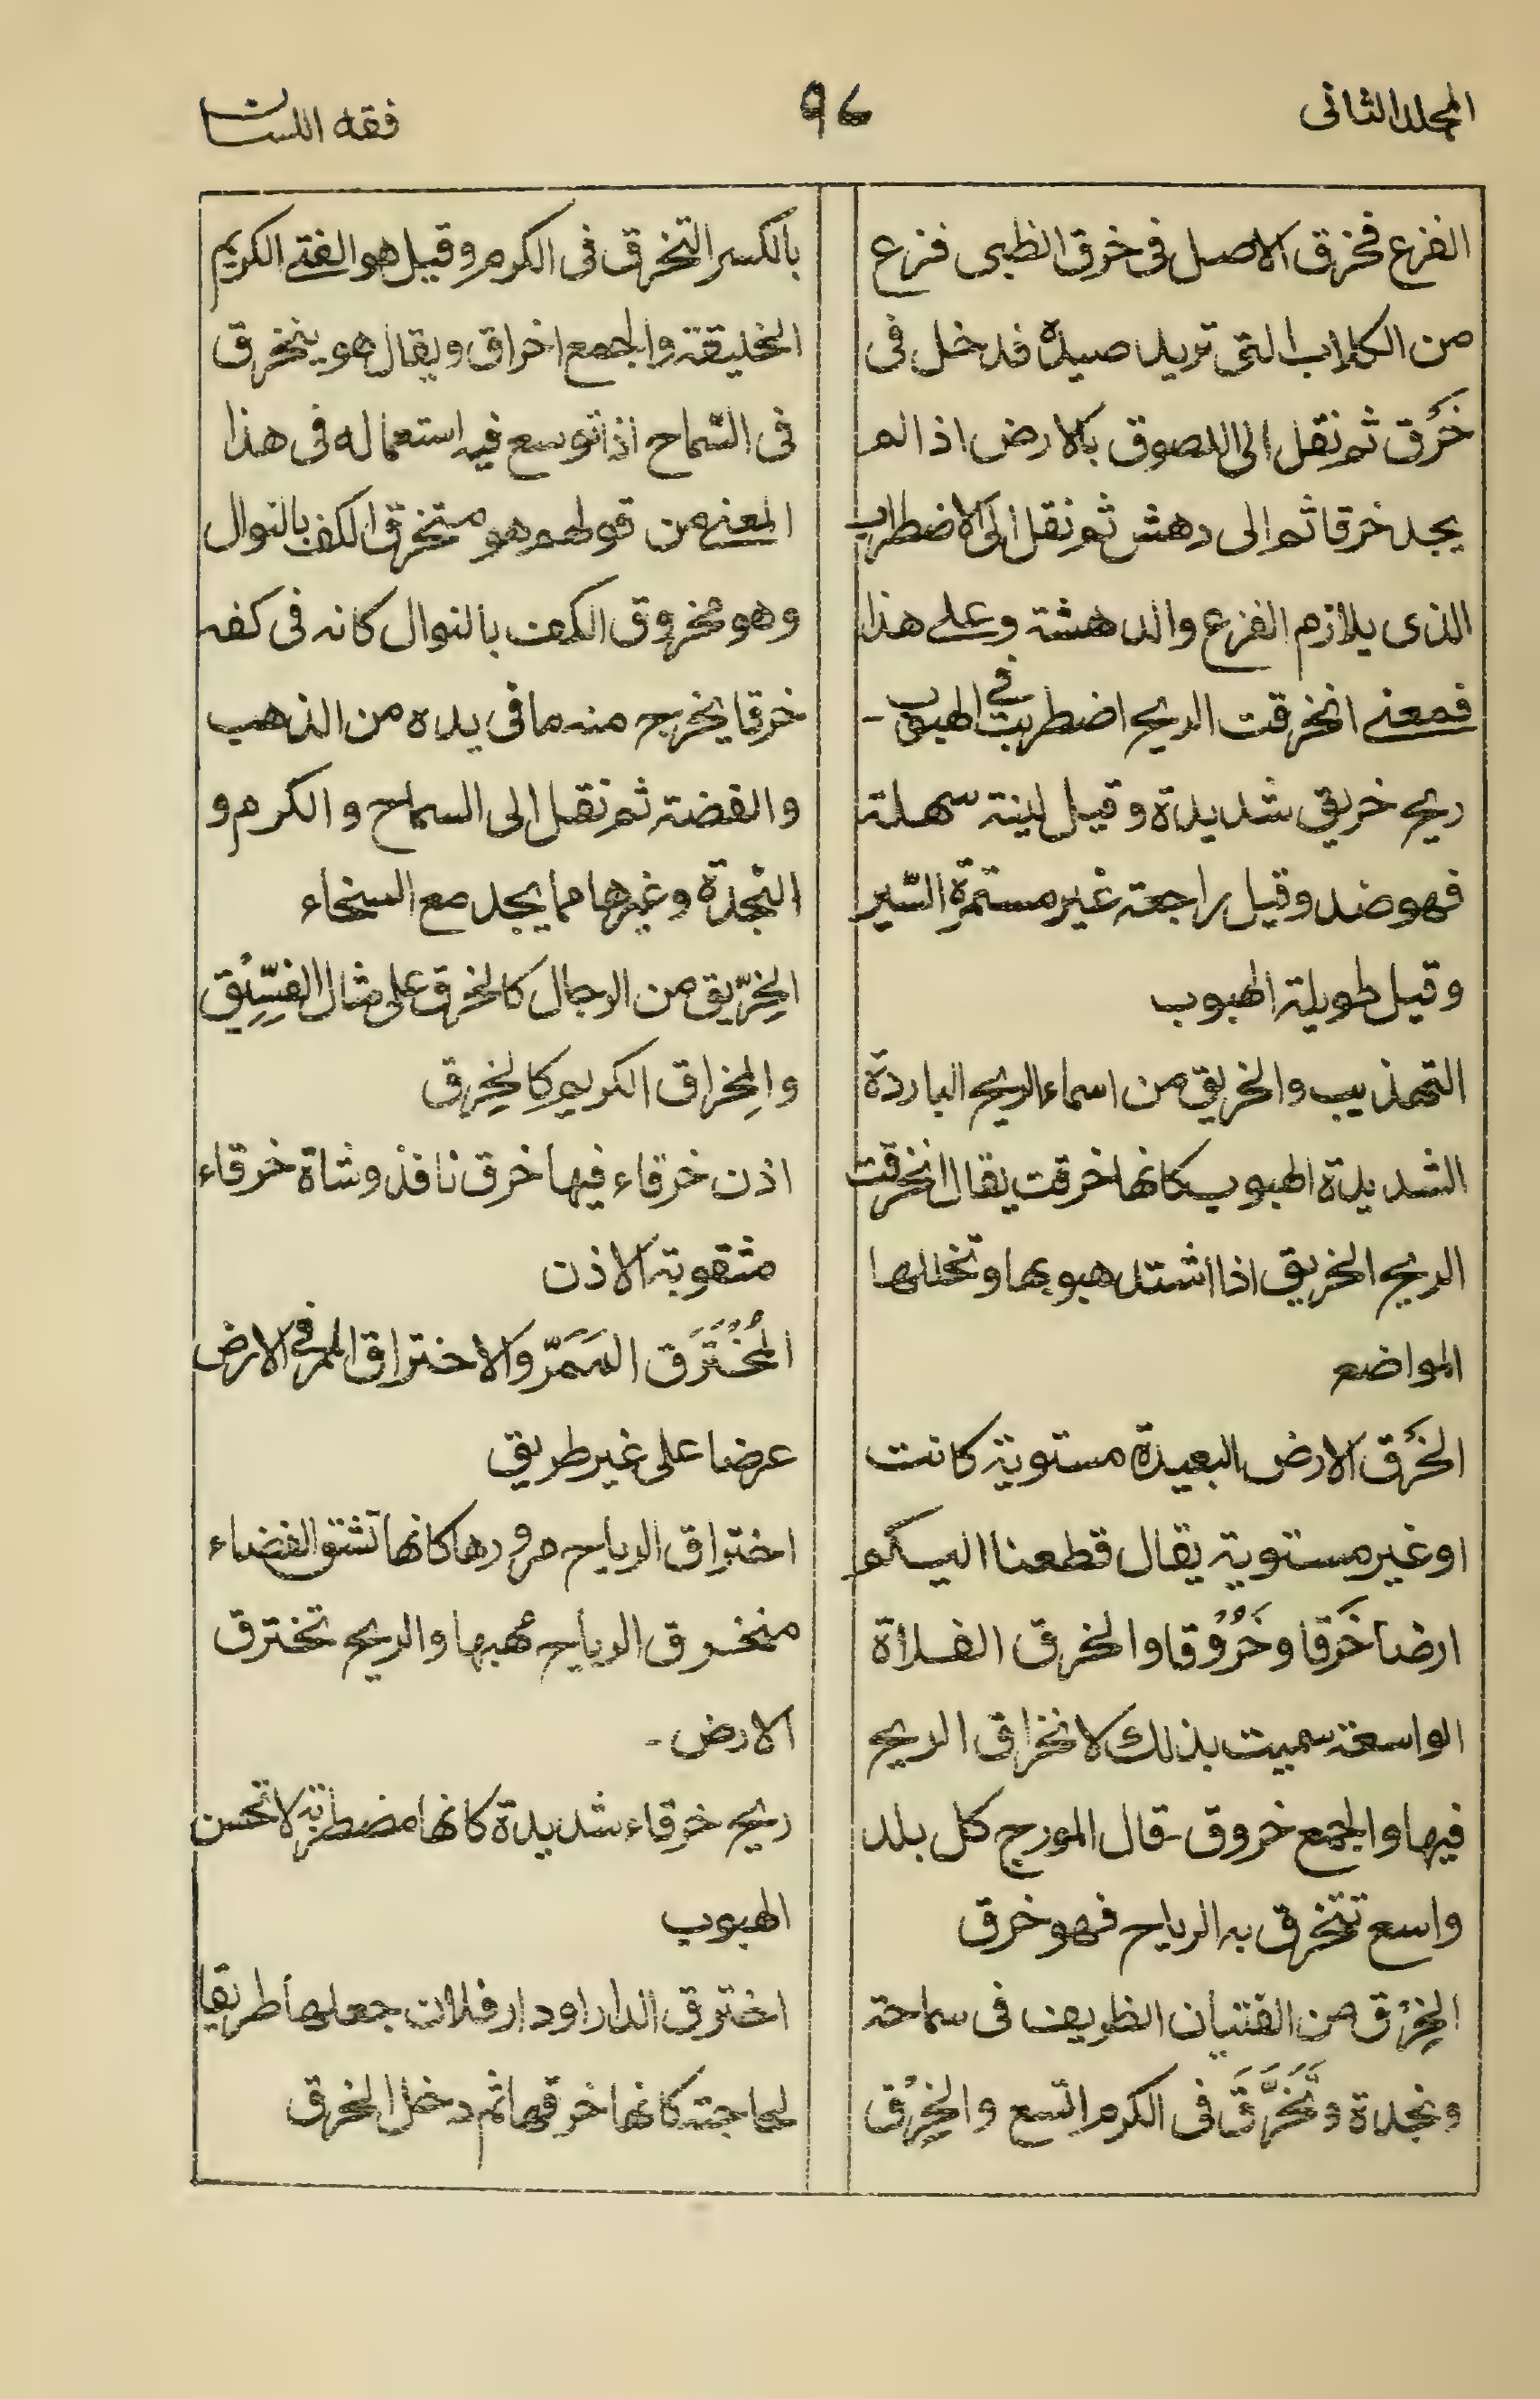 المجلد الثانى
٩٦
فقه اللسان
الفزع فخرق الاصل فى خرق الظبى فزع
من الكلاب التى تريد صيده فدخل فى
خَرْق ثم نقل الى اللصوق بالارض اذا لم
يجد خرقا ثم الى دهش ثم نقل الى الاضطراب
الذى يلازم الفزع والدهشة وعلى هذا
فمعنى انخرقت الريح اضطربت فى الهبوب -
ريح خريق شديدة وقيل لينة سهلة
فهو ضد وقيل راجعة غير مستمرة السّير
وقيل طويلة الهبوب
التهذيب والخريق من اسماء الريح الباردة
الشديدة الهبوب كانها خرقت يقال انخرقت
الريح الخريق اذا اشتد هبوبها وتخللها
المواضع
الخَرْق الارض البعيدة مستوية كانت
او غير مستوية يقال قطعنا اليكم
ارضا خَرْقا وخُرُوْقا والخرق الفلاة
الواسعة سميت بذلك لانخراق الريح
فيها والجمع خروق - قال المورج كل بلد
واسع تتخرق به الرياح فهو خرق
الخِرْق من الفتيان الظريف فى سماحة
ونجدة وتَخَرَّقَ فى الكرم اتسع والخِرْق
بالكسر التخرق فى الكرم وقيل هو الفتى الكريم
الخليقة والجمع اخراق ويقال هو يتخرق
فى السّماح اذا توسع فيه استعماله فى هذا
المعنى من قولهم هو متخرق الكف بالنوال
وهو مخروق الكف بالنوال كانه فى كفه
خرقا يخرج منه ما فى يده من الذهب
والفضة ثم نقل الى السماح والكرم و
النجدة وغيرها مما يجد مع السخاء
الخِرّيق من الرجال كالخرق على مثال الفِسِّيْق
والمِخراق الكريم كالخِرق
اذن خرقاء فيها خرق نافذ وشاة خرقاء
مثقوبة الاذن
المُخْتَرَق المَمَرّ والاختراق الممر فى الارض
عرضا على غير طريق
اختراق الرياح مرورها كانها تشتق الفضاء
منخرق الرياح مهبها والريح تخترق
الارض -
ريح خرقاء شديدة كانها مضطربة لا تحسن
الهبوب
اخترق الدار او دار فلان جعلها طريقا
لحاجته كانها خرقها ثم دخل الخرق